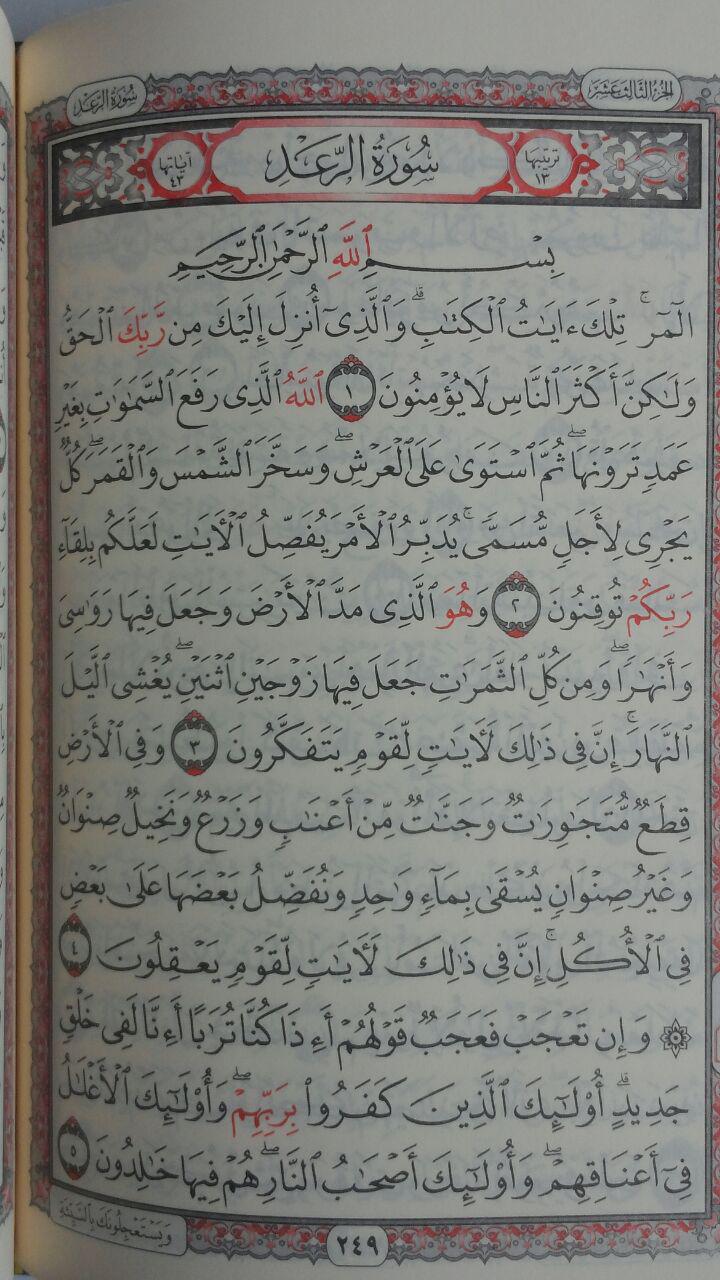 الجزء الثالث عشر
سورة الرعد
ترتيبها ١٣
سُورَةُ الرَّعْدِ
آياتها ٤٣
بِسْمِ ٱللَّهِ ٱلرَّحْمَٰنِ ٱلرَّحِيمِ
الٓمٓر ۚ تِلْكَ ءَايَٰتُ ٱلْكِتَٰبِ ۗ وَٱلَّذِىٓ أُنزِلَ إِلَيْكَ مِن رَّبِّكَ ٱلْحَقُّ
وَلَٰكِنَّ أَكْثَرَ ٱلنَّاسِ لَا يُؤْمِنُونَ ١ ٱللَّهُ ٱلَّذِى رَفَعَ ٱلسَّمَٰوَٰتِ بِغَيْرِ
عَمَدٍ تَرَوْنَهَا ۖ ثُمَّ ٱسْتَوَىٰ عَلَى ٱلْعَرْشِ ۖ وَسَخَّرَ ٱلشَّمْسَ وَٱلْقَمَرَ ۖ كُلٌّ
يَجْرِى لِأَجَلٍ مُّسَمًّى ۚ يُدَبِّرُ ٱلْأَمْرَ يُفَصِّلُ ٱلْءَايَٰتِ لَعَلَّكُم بِلِقَآءِ
رَبِّكُمْ تُوقِنُونَ ٢ وَهُوَ ٱلَّذِى مَدَّ ٱلْأَرْضَ وَجَعَلَ فِيهَا رَوَٰسِىَ
وَأَنْهَٰرًا ۖ وَمِن كُلِّ ٱلثَّمَرَٰتِ جَعَلَ فِيهَا زَوْجَيْنِ ٱثْنَيْنِ ۖ يُغْشِى ٱلَّيْلَ
ٱلنَّهَارَ ۚ إِنَّ فِى ذَٰلِكَ لَءَايَٰتٍ لِّقَوْمٍ يَتَفَكَّرُونَ ٣ وَفِى ٱلْأَرْضِ
قِطَعٌ مُّتَجَٰوِرَٰتٌ وَجَنَّٰتٌ مِّنْ أَعْنَٰبٍ وَزَرْعٌ وَنَخِيلٌ صِنْوَانٌ
وَغَيْرُ صِنْوَانٍ يُسْقَىٰ بِمَآءٍ وَٰحِدٍ وَنُفَضِّلُ بَعْضَهَا عَلَىٰ بَعْضٍ
فِى ٱلْأُكُلِ ۚ إِنَّ فِى ذَٰلِكَ لَءَايَٰتٍ لِّقَوْمٍ يَعْقِلُونَ ٤
۞ وَإِن تَعْجَبْ فَعَجَبٌ قَوْلُهُمْ أَءِذَا كُنَّا تُرَٰبًا أَءِنَّا لَفِى خَلْقٍ
جَدِيدٍ ۗ أُو۟لَٰٓئِكَ ٱلَّذِينَ كَفَرُوا۟ بِرَبِّهِمْ ۖ وَأُو۟لَٰٓئِكَ ٱلْأَغْلَٰلُ
فِىٓ أَعْنَاقِهِمْ ۖ وَأُو۟لَٰٓئِكَ أَصْحَٰبُ ٱلنَّارِ ۖ هُمْ فِيهَا خَٰلِدُونَ ٥
وَيَسْتَعْجِلُونَكَ بِالسَّيِّئَةِ
٢٤٩